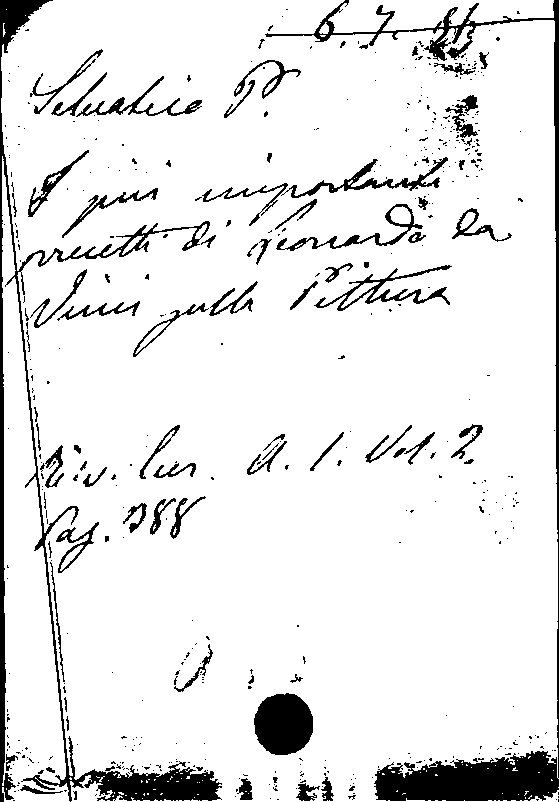 6. 7.
Selvatico P.
I più importanti
precetti di Leonardo da
Vinci sulla Pittura
Riv. Eur. A. 1. Vol. 2.
Pag. 388